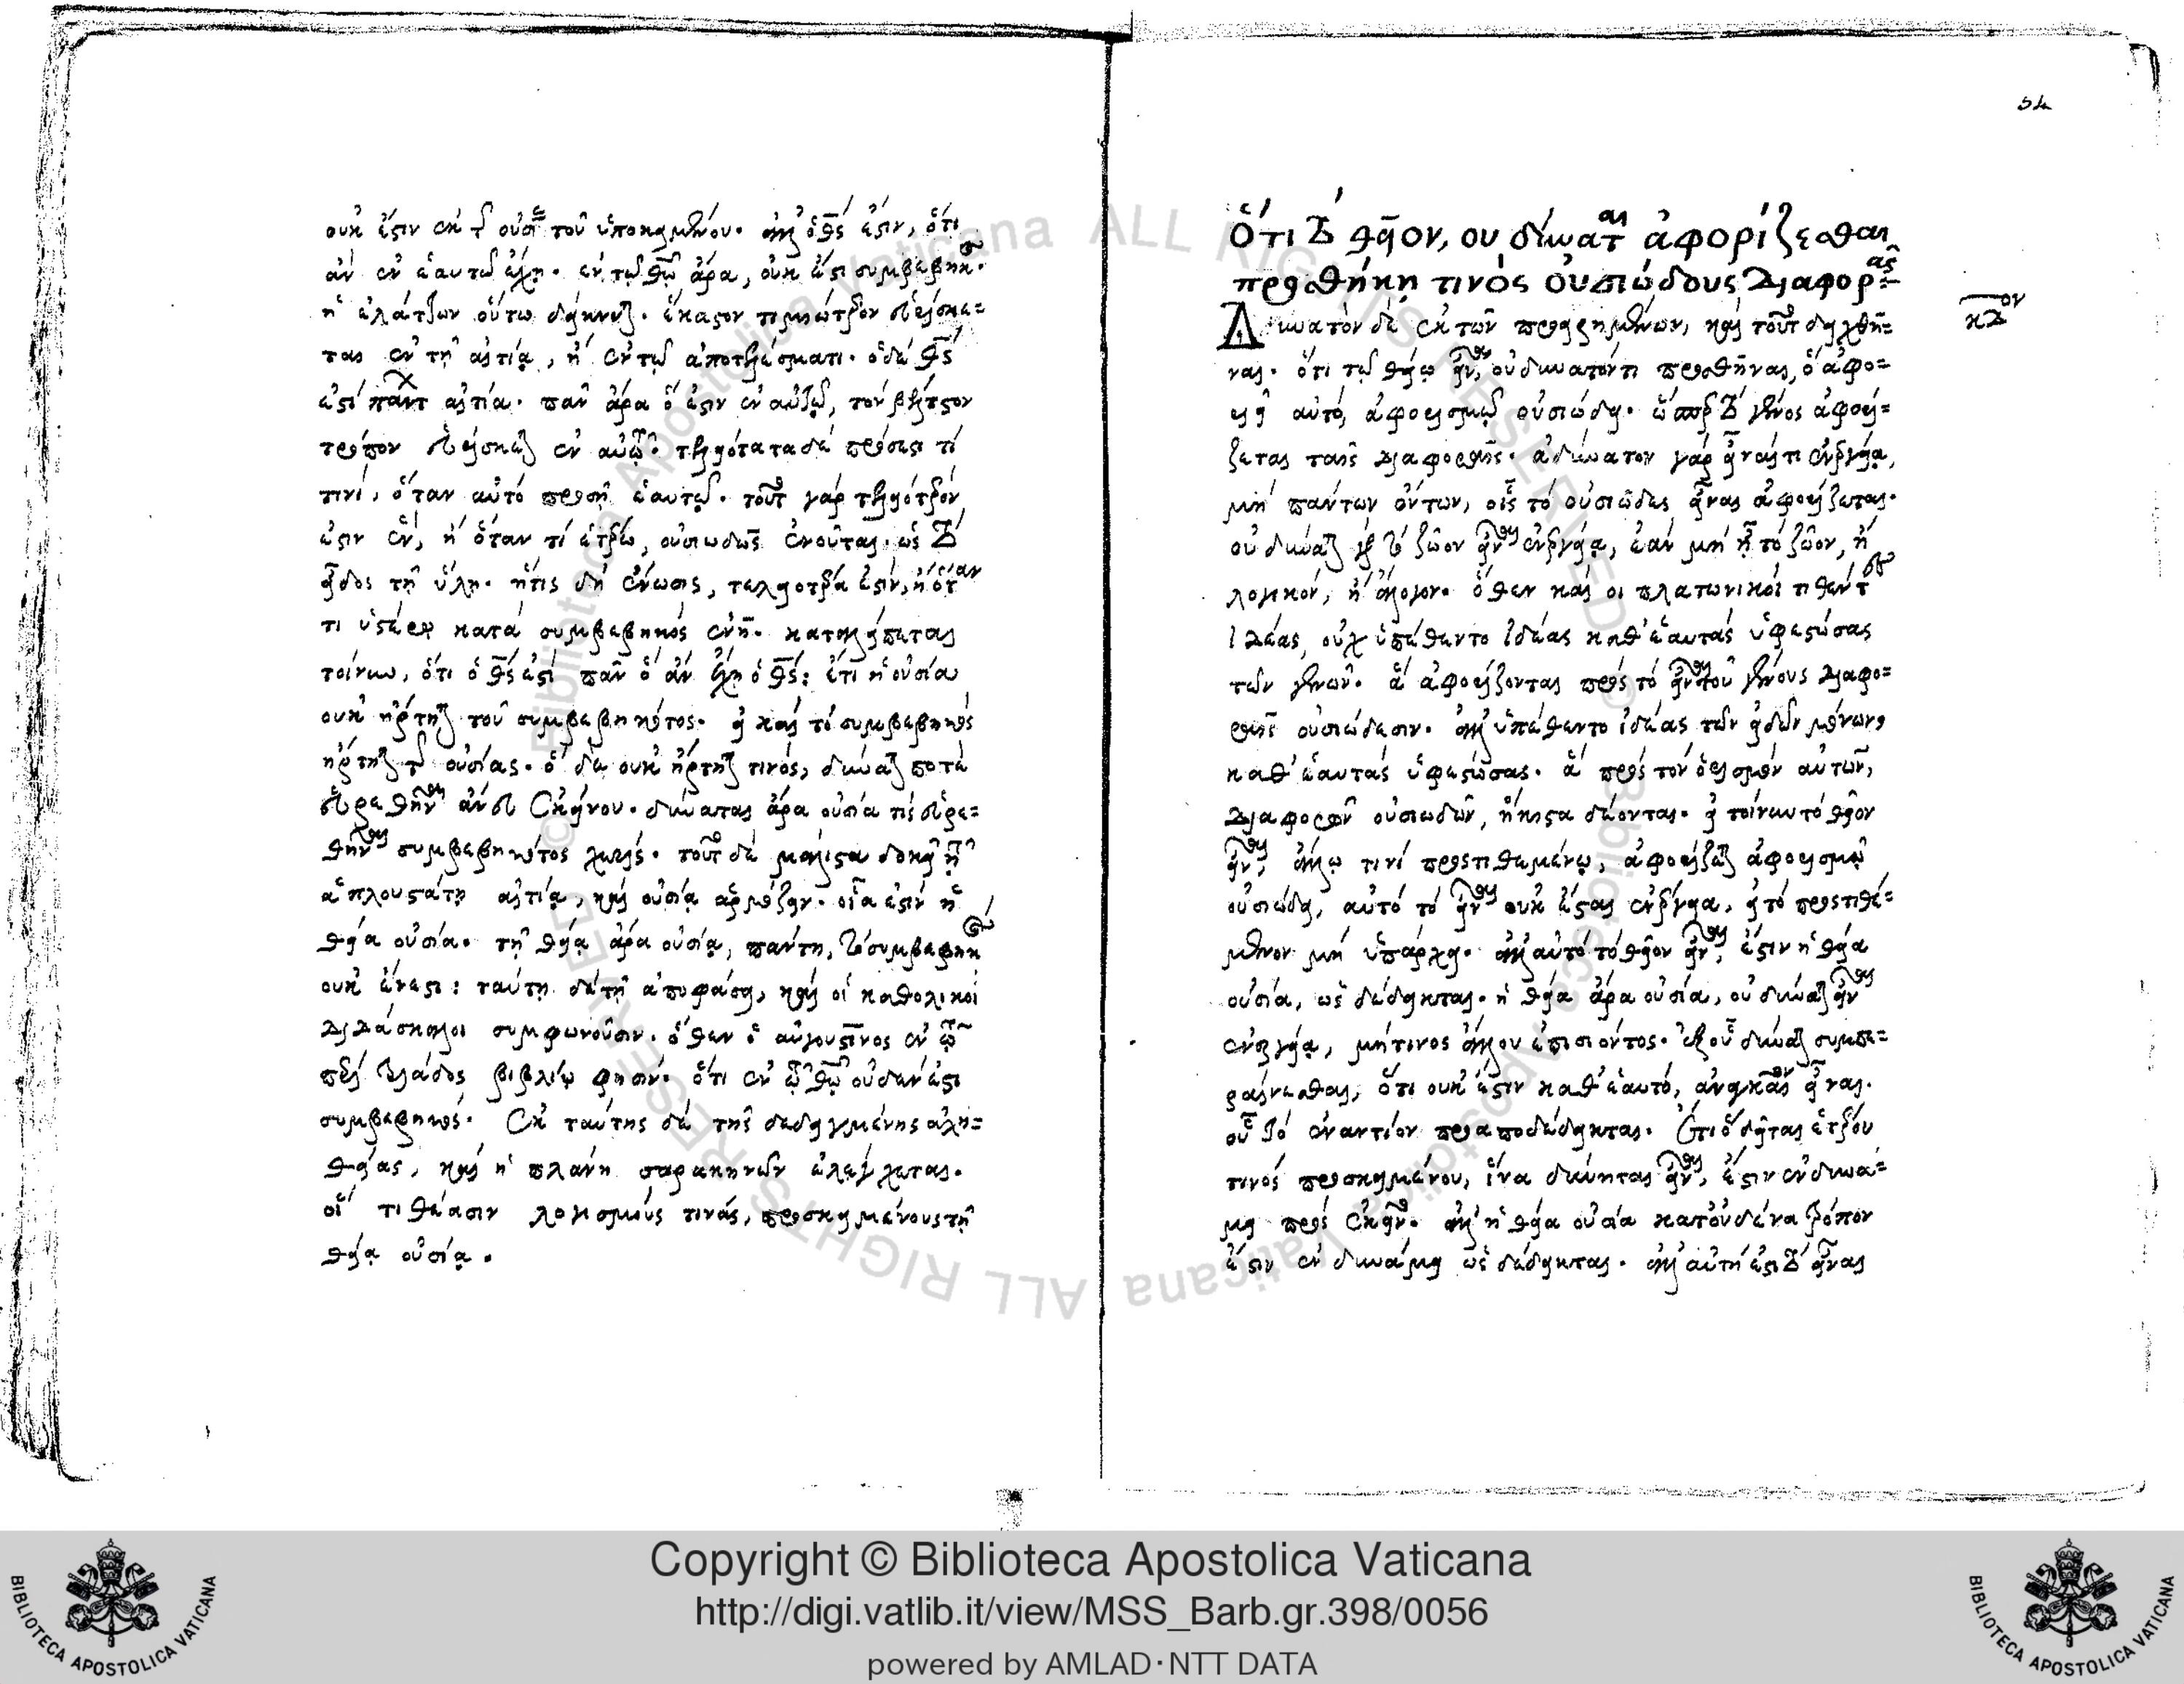 οὐκ ἔστιν ἐκ τῆς οὐσίας τοῦ ὑποκειμένου. ἀλλ' ὁ θς ἐστιν, ὅτι
ἂν ἐν ἑαυτῷ ἔχῃ. ἐν τῷ θῶ ἄρα, οὐκ ἔστι συμβεβηκός.
ἡ ἐλάττων οὕτω δείκνυται. ἕκαστον τιμιώτερον εὑρίσκε=
ται ἐν τῇ αἰτίᾳ, ἢ ἐν τῷ ἀποτελέσματι. ὁ δὲ θς
ἐστὶ πάντων αἰτία. πᾶν ἄρα ὅ ἐστιν ἐν αὐτῷ, τὸν βέλτιστον
τρόπον εὑρίσκεται ἐν αὐτῷ. τελειότατα δὲ πρόσεστί τί
τινι, ὅταν αὐτὸ προσῇ ἑαυτῷ. τοῦτο γὰρ τελειότερόν
ἐστιν ἓν, ἢ ὅταν τὶ ἑτέρῳ, οὐσιωδῶς ἑνοῦται, ὡς τὸ
εἶδος τῇ ὕλῃ. ἥτις δὴ ἕνωσις, τελειοτέρα ἐστὶν, ἢ ὅταν
τι ὑστέρῳ κατὰ συμβεβηκὸς ἐνῇ. καταλείπεται
τοίνυν, ὅτι ὁ θς ἐστὶ πᾶν ὃ ἂν ἔχῃ ὁ θς: ἔτι ἡ οὐσία
οὐκ ἤρτηται τοῦ συμβεβηκότος. εἰ καὶ τὸ συμβεβηκὸς
ἤρτηται τῆς οὐσίας. ὃ δὲ οὐκ ἤρτηται τινὸς, δύναται ποτὲ
εὑρεθῆναι ἄνευ ἐκείνου. δύναται ἄρα οὐσία τίς εὑρε=
θῆναι συμβεβηκότος χωρίς. τοῦτο δὲ μάλιστα δοκεῖ τῇ
ἁπλουστάτῃ αἰτίᾳ, καὶ οὐσίᾳ ἁρμόζειν. οἵα ἐστὶν ἡ
θεία οὐσία. τῇ θείᾳ ἄρα οὐσίᾳ, πάντη, τὸ συμβεβηκὸς
οὐκ ἔνεστι: ταύτῃ δὲ τῇ ἀποφάσει, καὶ οἱ καθολικοὶ
διδάσκαλοι συμφωνοῦσιν. ὅθεν ὁ αὐγουστῖνος ἐν τῷ
περὶ τριάδος βιβλίῳ φησίν. ὅτι ἐν τῷ θῶ οὐδὲν ἐστι
συμβεβηκός. Ἐκ ταύτης δὲ τῆς δεδειγμένης ἀλη=
θείας, καὶ ἡ πλάνη σαρακηνῶν ἐλέγχεται.
οἳ τιθέασιν λογισμούς τινας, προσκειμένους τῇ
θείᾳ οὐσίᾳ.
Ὅτι τὸ θεῖον, οὐ δύναται ἀφορίζεσθαι
προσθήκῃ τινὸς οὐσιώδους διαφορᾶς
κδ ον
Δυνατὸν δὲ ἐκ τῶν προειρημένων, καὶ τοῦτο δειχθῆ=
ναι. ὅτι τῷ θείῳ εἶναι, οὐ δυνατόν τι προσθῆναι, ὃ ἀφο=
ριεῖ αὐτὸ, ἀφορισμῷ οὐσιώδει. ὥσπερ τὸ γένος ἀφορί=
ζεται ταῖς διαφοραῖς. ἀδύνατον γὰρ εἶναί τι ἐνεργείᾳ,
μὴ πάντων ὄντων, οἷς τὸ οὐσιῶδες εἶναι ἀφορίζεται.
οὐ δύναται γὰρ τὸ ζῶον εἶναι ἐνεργείᾳ, ἐὰν μὴ ᾖ τὸ ζῶον, ἢ
λογικόν, ἢ ἄλογον. ὅθεν καὶ οἱ πλατωνικοὶ τιθέντες
ἰδέας, οὐχ ὑπέθεντο ἰδέας καθ' ἑαυτὰς ὑφεστώσας
τῶν γενῶν. ἃ ἀφορίζονται πρὸς τὸ εἶναι τοῦ γένους διαφο=
ραῖς οὐσιώδεσιν. ἀλλ' ὑπέθεντο ἰδέας τῶν εἰδῶν μόνων,
καθ' ἑαυτὰς ὑφεστώσας. ἃ πρὸς τὸν ὁρισμὸν αὐτῶν,
διαφορῶν οὐσιωδῶν, ἥκιστα δέονται. εἰ τοίνυν τὸ θεῖον
εἶναι, ἄλλῳ τινὶ προστιθεμένῳ, ἀφορίζεται ἀφορισμῷ
οὐσιώδει, αὐτὸ τὸ εἶναι οὐκ ἔσται ἐνεργείᾳ, εἰ τὸ προστιθέ=
μενον μὴ ὑπάρχει. ἀλλ' αὐτὸ τὸ θεῖον εἶναι, ἐστὶν ἡ θεία
οὐσία, ὡς δέδεικται. ἡ θεία ἄρα οὐσία, οὐ δύναται εἶναι
ἐνεργείᾳ, μή τινος ἄλλου ἐπιόντος. ἐξ οὗ δύναται συμπε=
ραίνεσθαι, ὅτι οὐκ ἔστιν καθ' ἑαυτὸ, ἀναγκαῖον εἶναι.
οὗ τὸ ἐναντίον προαποδέδεικται. Ἔτι ὃ δεῖται ἑτέρου
τινὸς προσκειμένου, ἵνα δύνηται εἶναι, ἔστιν ἐν δυνά=
μει πρὸς ἐκεῖνο. ἀλλ' ἡ θεία οὐσία κατ' οὐδένα τρόπον
ἔστιν ἐν δυνάμει ὡς δέδεικται. ἀλλ' αὐτή ἐστι τὸ εἶναι
Copyright © Biblioteca Apostolica Vaticana
http://digi.vatlib.it/view/MSS_Barb.gr.398/0056
powered by AMLAD·NTT DATA
BIBLIOTECA APOSTOLICA VATICANA
BIBLIOTECA APOSTOLICA VATICANA